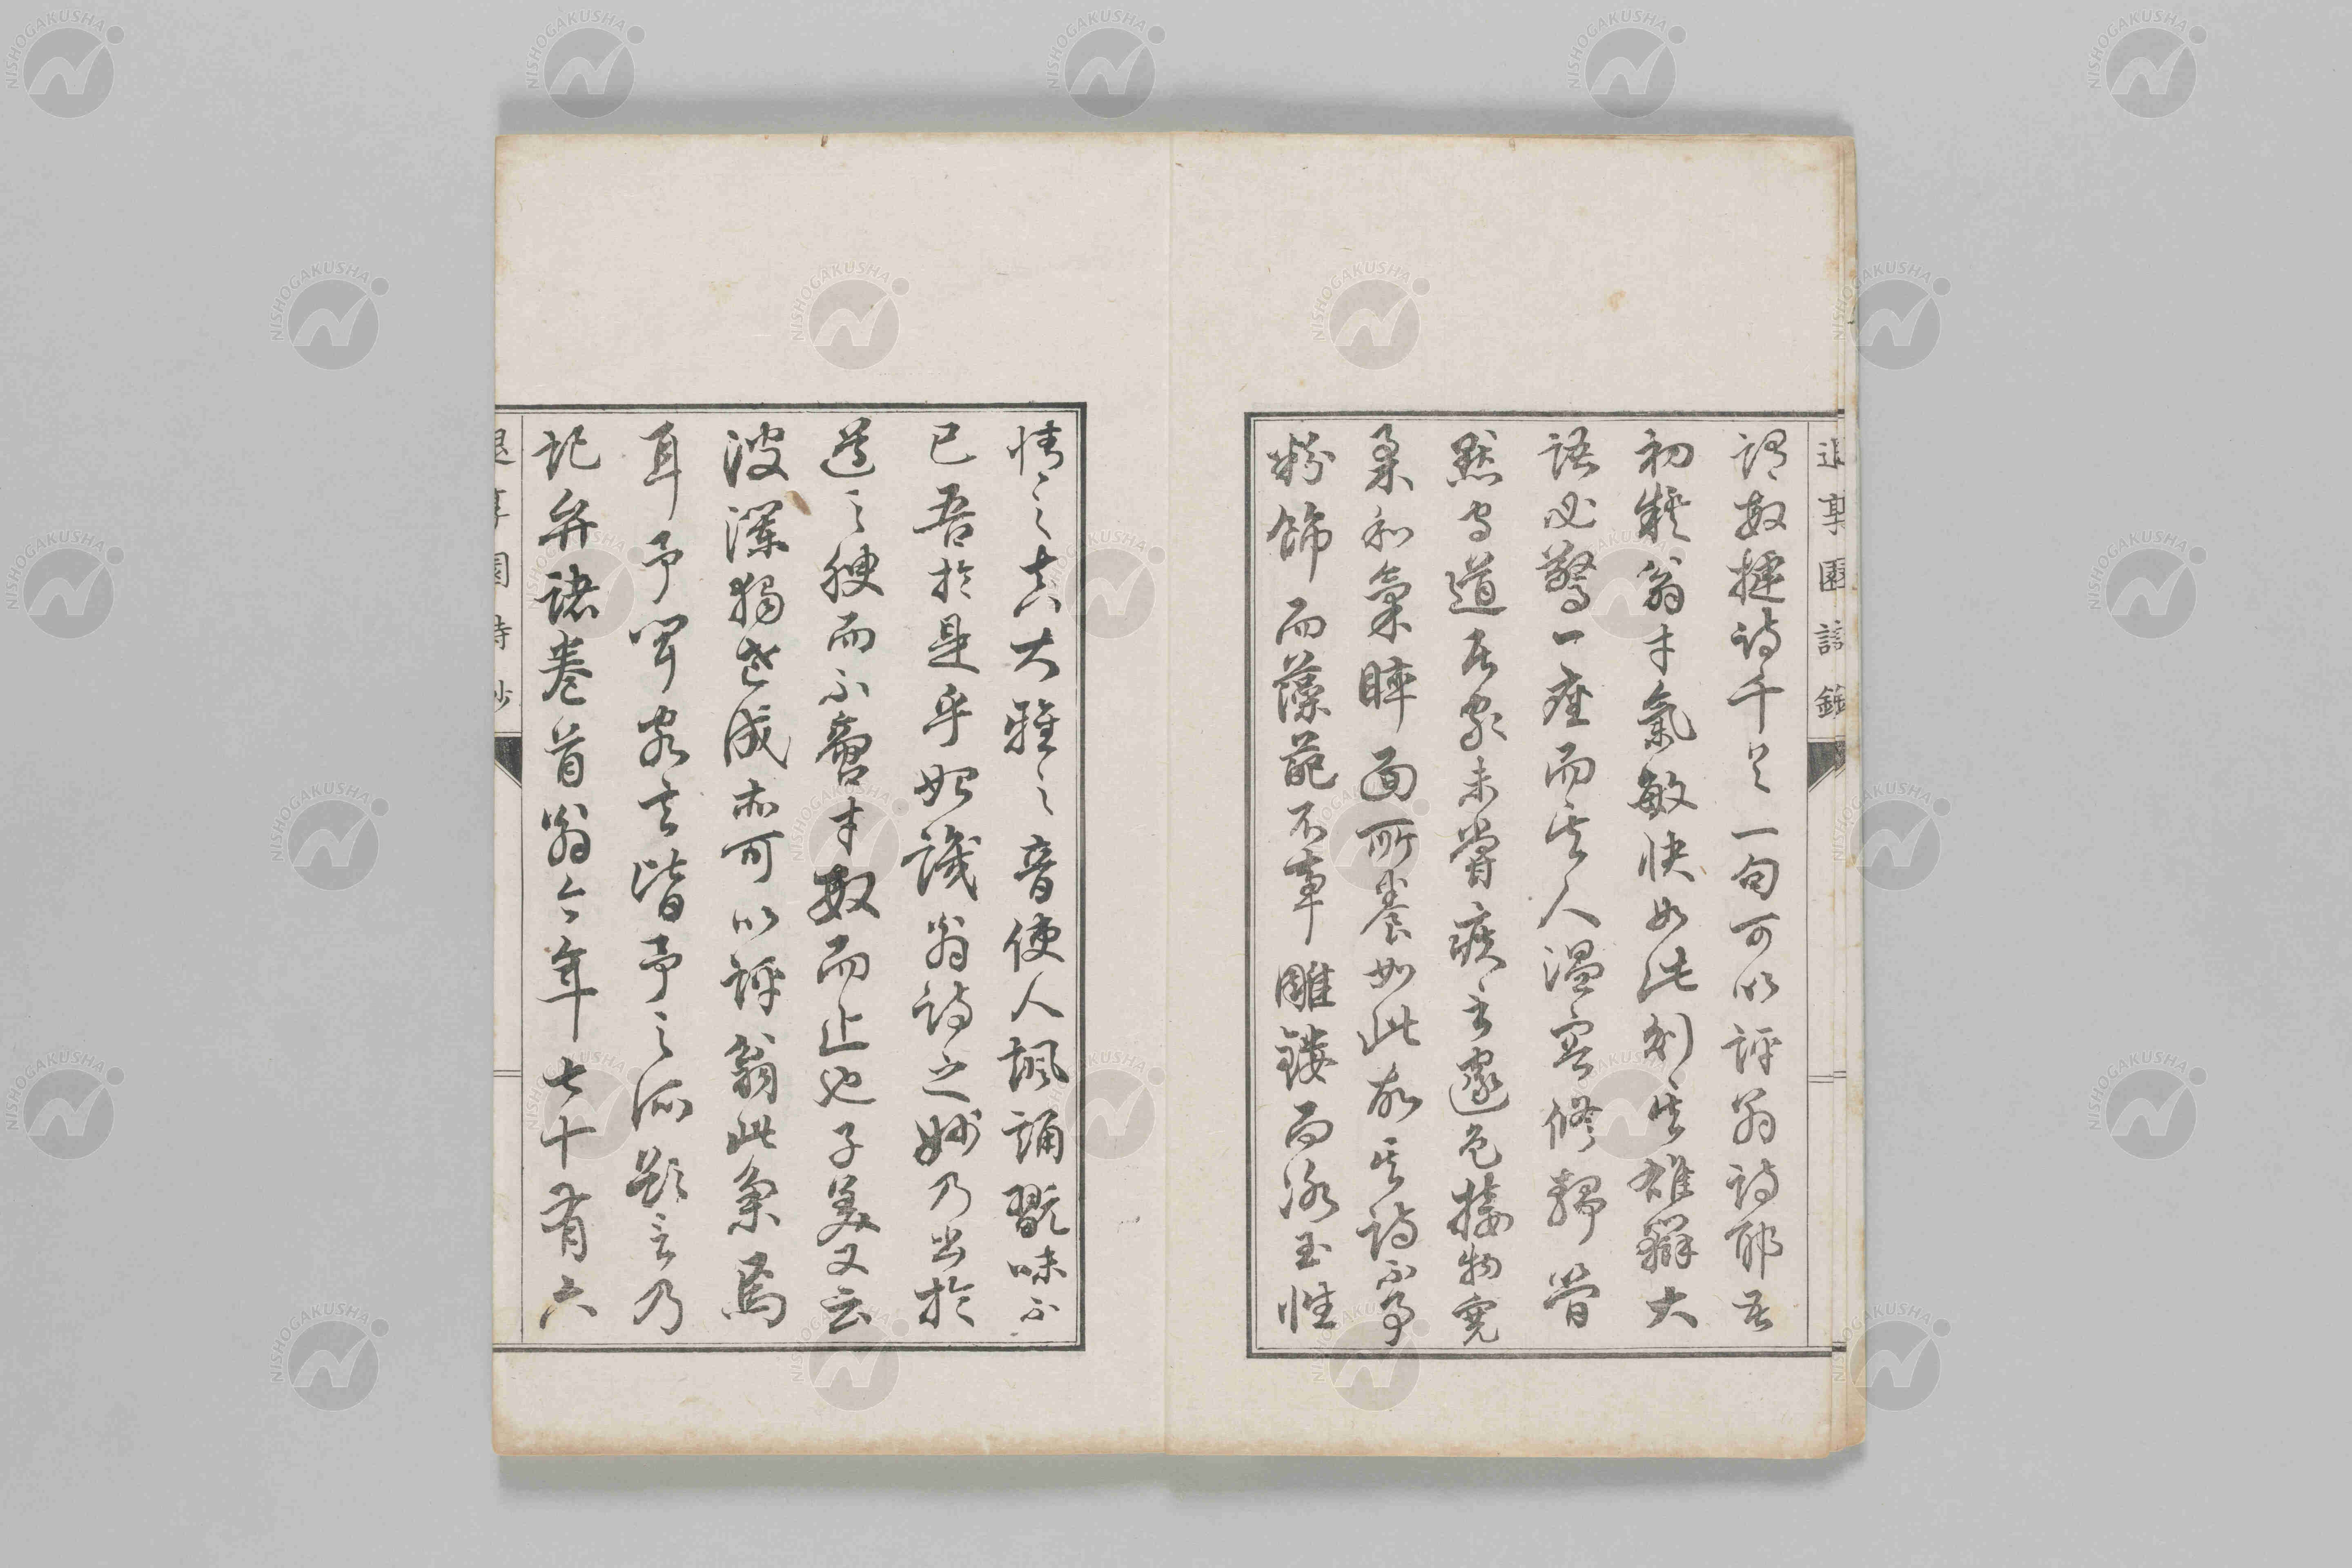 退享園詩鈔
謂敏捷詩千首一句可以評翁詩耶吾
初疑翁才氣敏快如此則其雄辯大
語必驚一座而其人温容修靜簡
默守道居家未嘗疾言遽色接物寛
柔和氣睟面所養如此故其詩不事
粉飾而藻葩不事雕鏤而冰玉性
情之真大雅之音使人諷誦翫味不
已吾於是乎始識翁詩之妙乃出於
道之腴而不啻才敏而止也子美又云
波瀾獨老成亦可以評翁此集焉
耳予聞客言皆予之所欲言乃
記弁諸卷首翁今年七十有六
退享園詩鈔
NISHOGAKUSHA